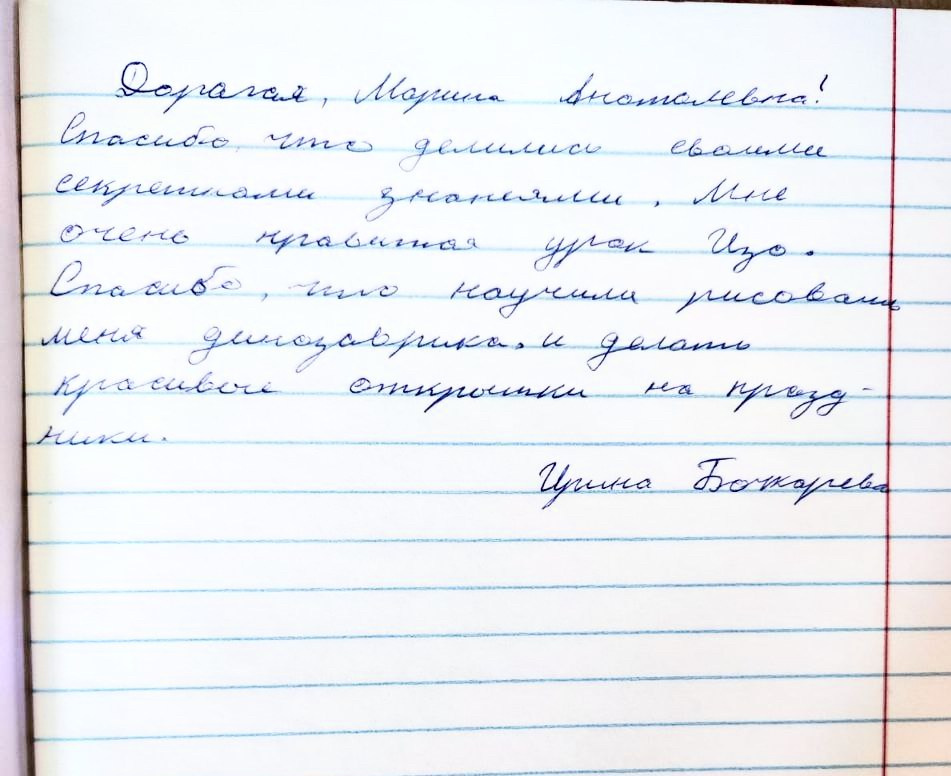 Дорагая, Марина Анатолевна!
Спасибо, что делилиси своими
секретиками знаниями. Мне
очень нравитая урок Изо.
Спасибо, что научили рисовать
меня динозаврика. и делать
красивые открытки на празд-
ники.
Ирина Бочкарева